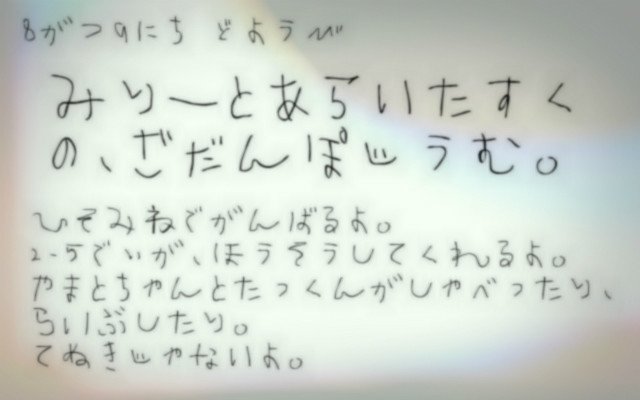 8がつ9にち どようび
みりーとあらいたすく
の、ざだんぽじうむ。
ひそみねでがんばるよ。
2.5でぃが、ほうそうしてくれるよ。
やまとちゃんとたっくんがしゃべったり、
らいぶしたり。
てぬきじゃないよ。